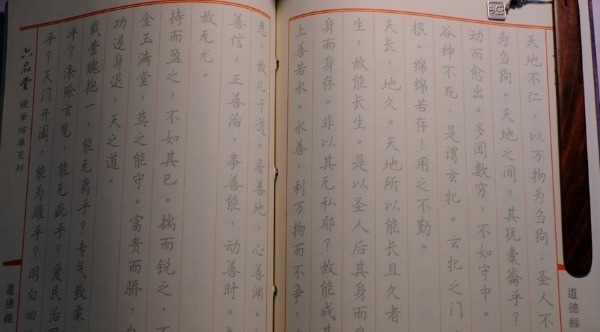 道德經
天地不仁，以万物为刍狗；圣人不
为刍狗。天地之间，其犹橐龠乎？
动而愈出。多闻数穷，不如守中。
谷神不死，是谓玄牝。玄牝之门
根。绵绵若存！用之不勤。
天长，地久。天地所以能长且久者
生，故能长生。是以圣人后其身而
身而身存。非以其无私耶？故能成其
上善若水。水善，利万物而不争，
恶，故几于道。居善地，心善渊。
善信，正善治，事善能，动善时。
故无尤。
持而盈之，不如其已。揣而锐之，不
金玉满堂，莫之能守。富贵而骄，
功遂身退，天之道。
载营魄抱一，能无离乎？专气致柔
乎？涤除玄览，能无疵乎？爱民治
乎？天门开阖，能为雌乎？明白四
六品堂 硬筆描摹系列
道德經